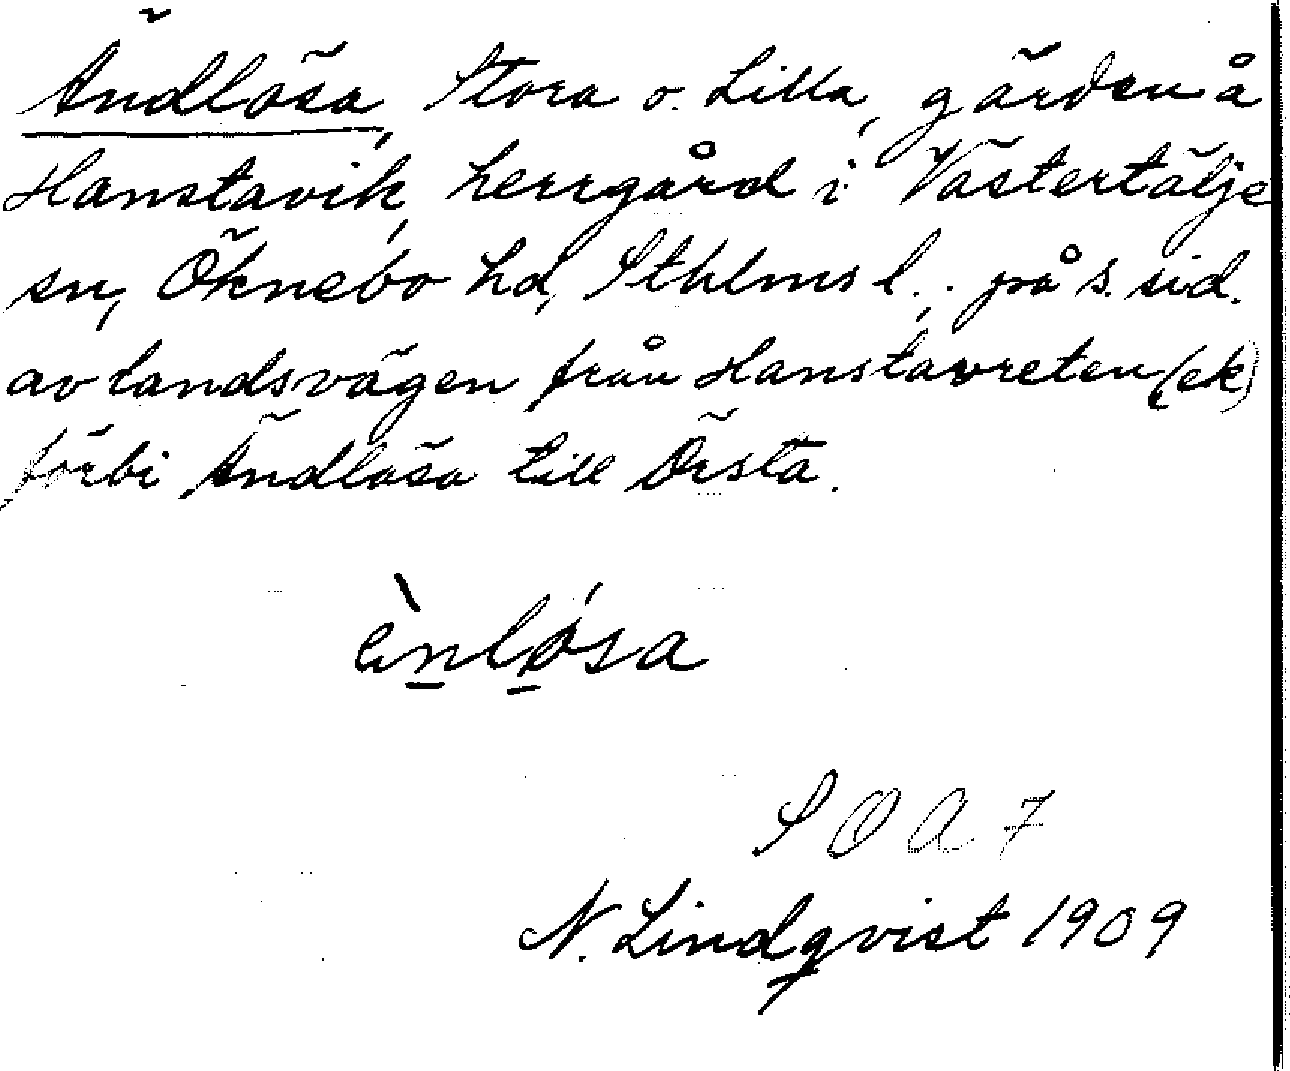 Ändlösa, Stora o. Lilla, gärden å
Hanstavik, herrgård i Västertälje
sn, Öknebo hd, Sthlms l., på s. sid.
av landsvägen från Hanstavreten (ek)
förbi Ändlösa till Örsta.
ὲnlǿsa
SOA 7
N. Lindqvist 1909